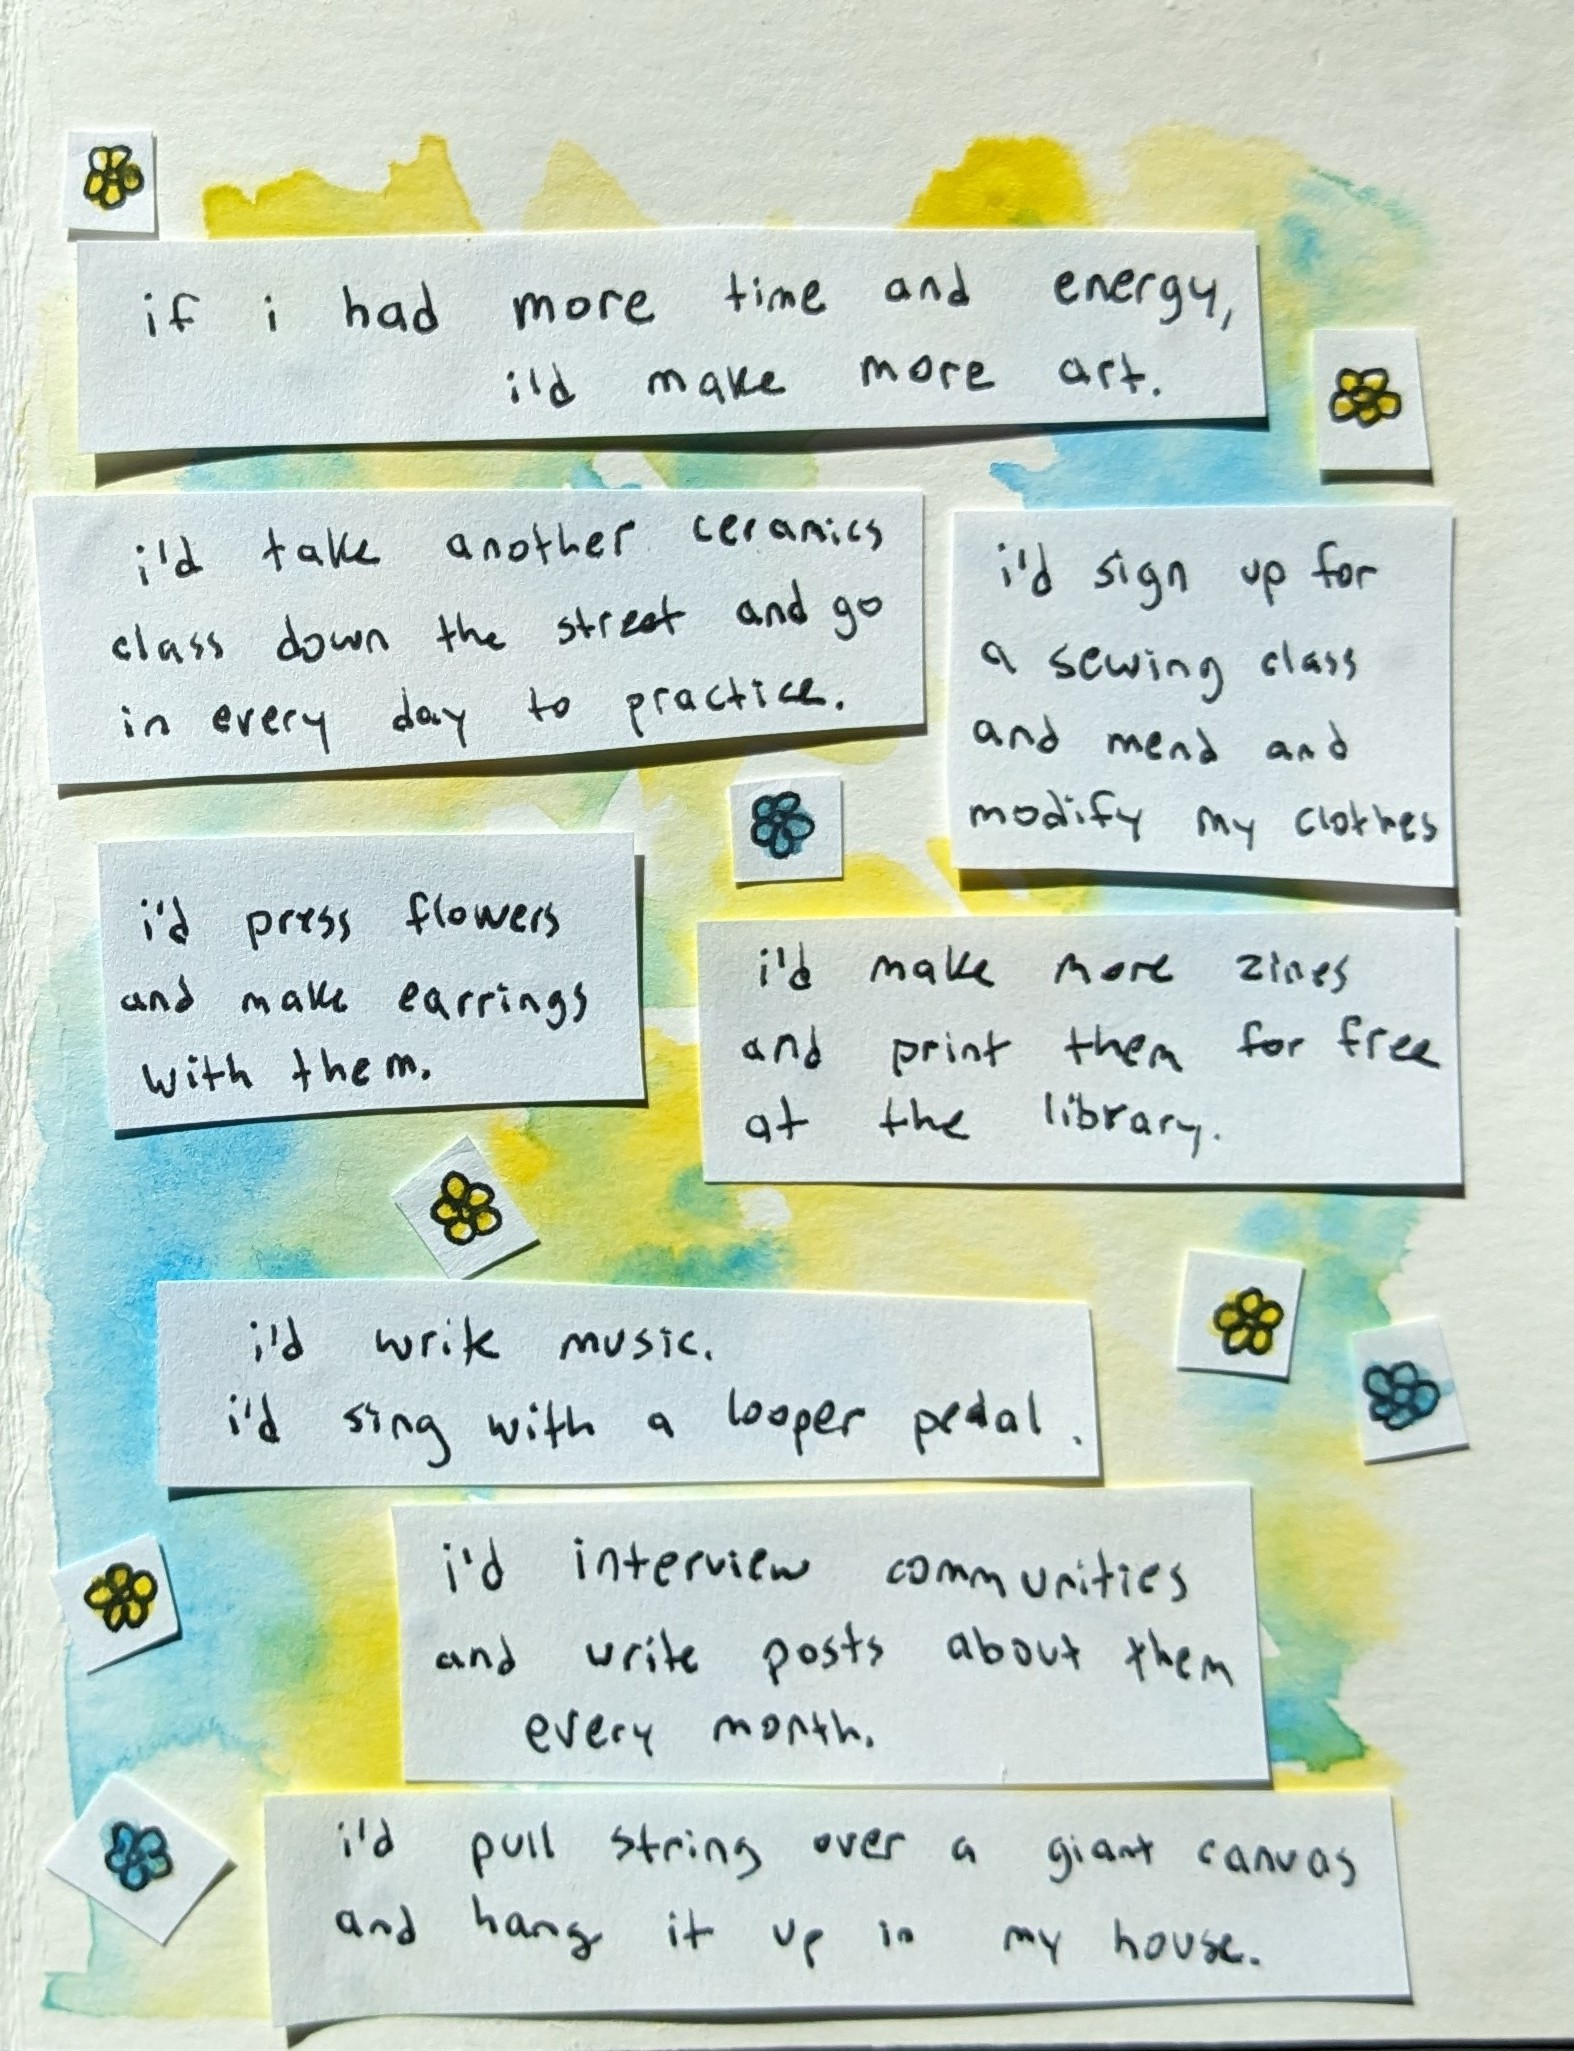 if i had more time and energy,
i'd make more art.
i'd take another ceramics
class down the street and go
in every day to practice.
i'd sign up for
a sewing class
and mend and
modify my clothes
i'd press flowers
and make earrings
with them.
i'd make more zines
and print them for free
at the library.
i'd write music.
i'd sing with a looper pedal.
i'd interview communities
and write posts about them
every month.
i'd pull string over a giant canvas
and hang it up in my house.